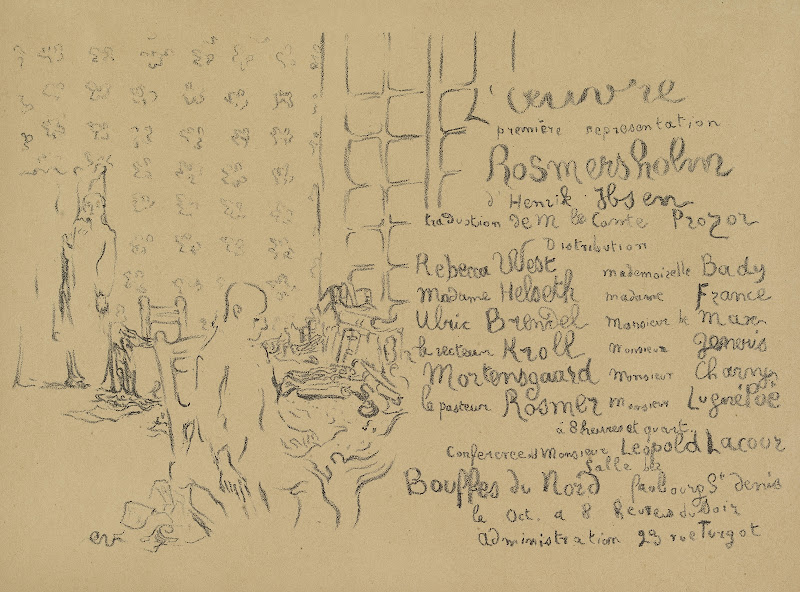 L'œuvre
première representation
Rosmersholm
d'Henrik Ibsen
traduction de M le Comte Prozor
Distribution
Rebecca West mademoiselle Bady
Madame Helseth madame France
Ulric Brendel Monsieur de Max
le recteur Kroll Monsieur
Mortensgaard Monsieur Charny
le pasteur Rosmer Monsieur Lugné Poë
à 8 heures et quart
Conference de Monsieur Leopold Lacour
Salle des
Bouffes du Nord faubourg St denis
le Oct. a 8 heures du Soir
administration 23 rue Turgot
ev